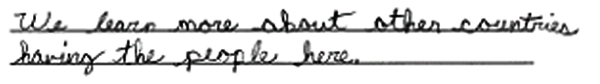 We learn more about other countries
having the people here.